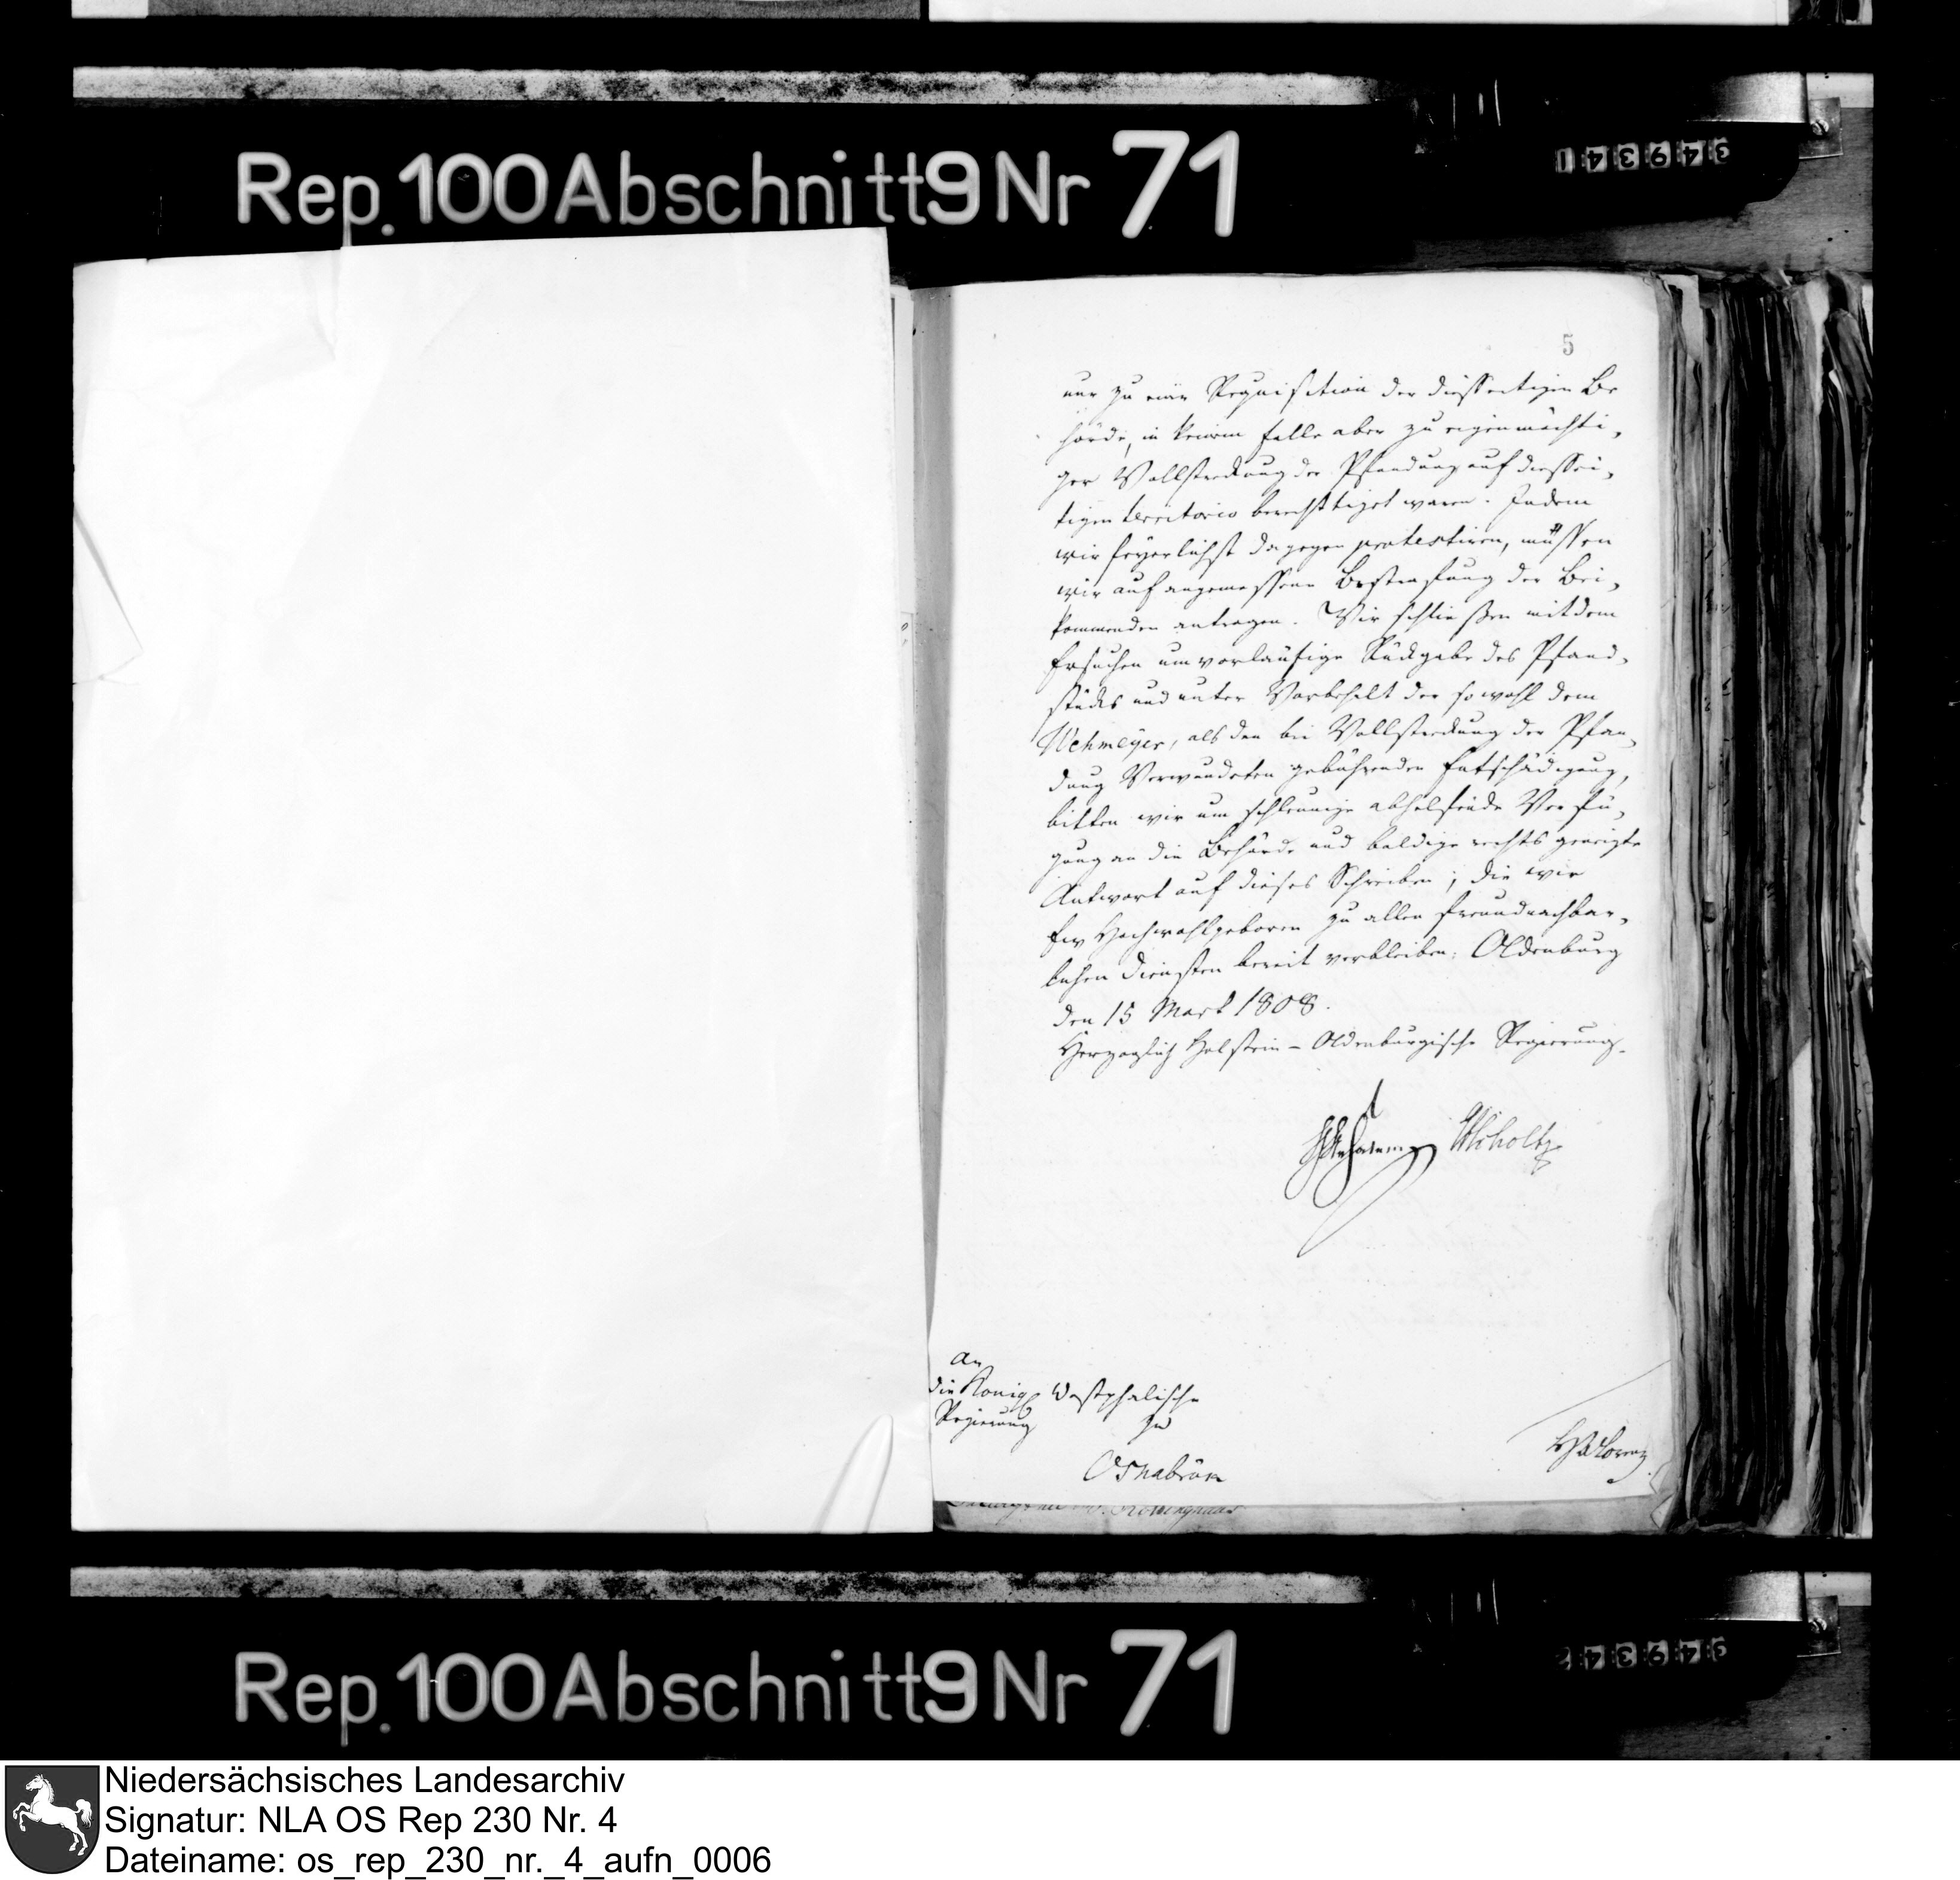 Rep. 100 Abschnitt 9 Nr 71
349341
5
nur zu einer Requisition der diesseitigen Be
hörde, in keinem Falle aber zu eigenmächti-
ger Vollstreckung der Pfandung auf diessei-
tigen territorio berechtiget waren. Indem
wir feyerlichst dagegen protestiren, müssen
wir auf angemessene Bestrafung der Bei-
kommenden antragen. Wir schließen mit dem
Ersuchen um vorläufige Rückgabe des Pfand-
stücks und unter Vorbehalt der sowohl dem
Wehmeyer, als den bei Vollstreckung der Pfan-
dung Verwundeten gebührenden Entschädigung,
bitten wir um schleunige abhelfende Verfü-
gung an die Behörde und baldige rechts geneigte
Antwort auf dieses Schreiben; die wir
Ew Hochwohlgeboren zu allen freundnachbar-
lichen Diensten bereit verbleiben. Oldenburg
den 15 Mart 1808.
Herzoglich Holstein-Oldenburgische Regierung.
An
die Königl Westphalische
Regierung zu
Osnabrük
Rep. 100 Abschnitt 9 Nr 71
349342
Niedersächsisches Landesarchiv
Signatur: NLA OS Rep 230 Nr. 4
Dateiname: os_rep_230_nr._4_aufn_0006